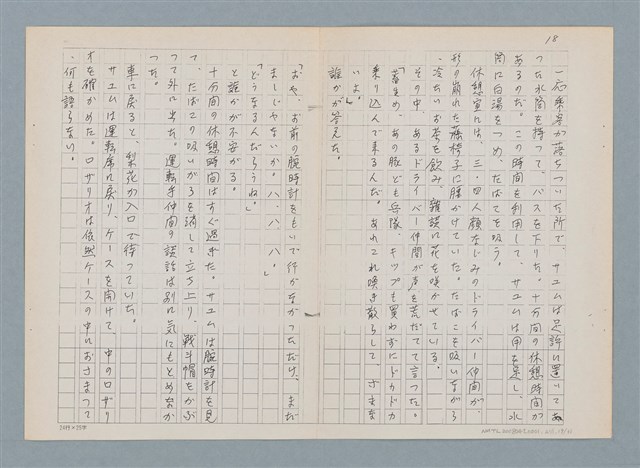 18
一応乗客が落ちついた所で、サユムは足許に置いてあ
った水筒を持って、バスを下りた。十分間の休憩時間が
あるのだ。この時間を利用して、サユムは用を足し、水
筒に白湯をつめ、たばこを吸う。
休憩室には、三、四人顔なじみのドライバー仲間が、
形の崩れた藤椅子に腰かけていた。たばこを吸いながら
、冷たいお茶を飲み、雑談に花を咲かせている。
その中、あるドライバー仲間が声を荒だてて言った。
「畜生め、あの豚ども兵隊、キップも買わずにドカドカ
乗り込んで来るんだ。あれこれ喚き散らして、ざまな
いよ。」
誰かが答えた。
「おや、お前の腕時計をもいで行かなかっただけ、まだ
ましじゃないか。ハ、ハ、ハ。」
「どうなるんだろうね。」
と誰かが不安がる。
十分間の休憩時間はすぐ過ぎた。サユムは腕時計を見
て、たばこの吸いがらを消して立ち上り、戦斗帽をかぶ
って外に出た。運転手仲間の談話は別に気にもとめなか
った。
車に戻ると、梨花が入口で待っていた。
サユムは運転席に戻り、ケースを開けて、中のロザリ
オを確かめた。ロザリオは依然ケースの中におさまって
、何も語らない。